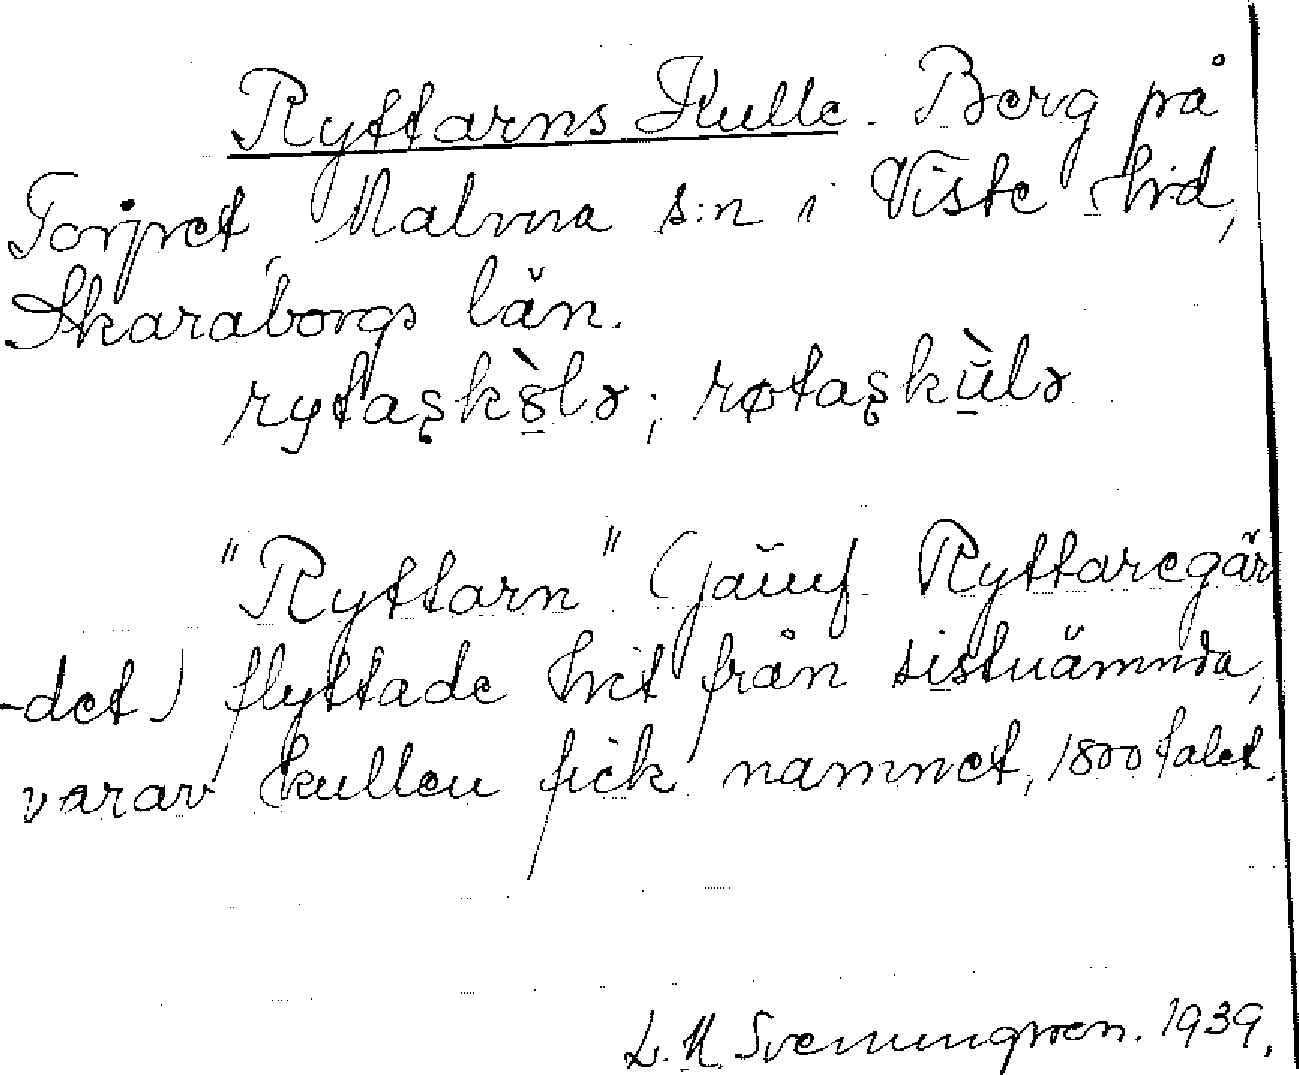 Ryttarns Kulle. Berg på
Torpet, Malma s:n i Viste hrd,
Skaraborgs län.
rytaşkòlə; røtaşkùlə
"Ryttarn" (jämf Ryttaregär
-det) flyttade hit från sistnämnda,
varav kullen fick namnet, 1800 talet.
L. M. Svenungsson. 1939.